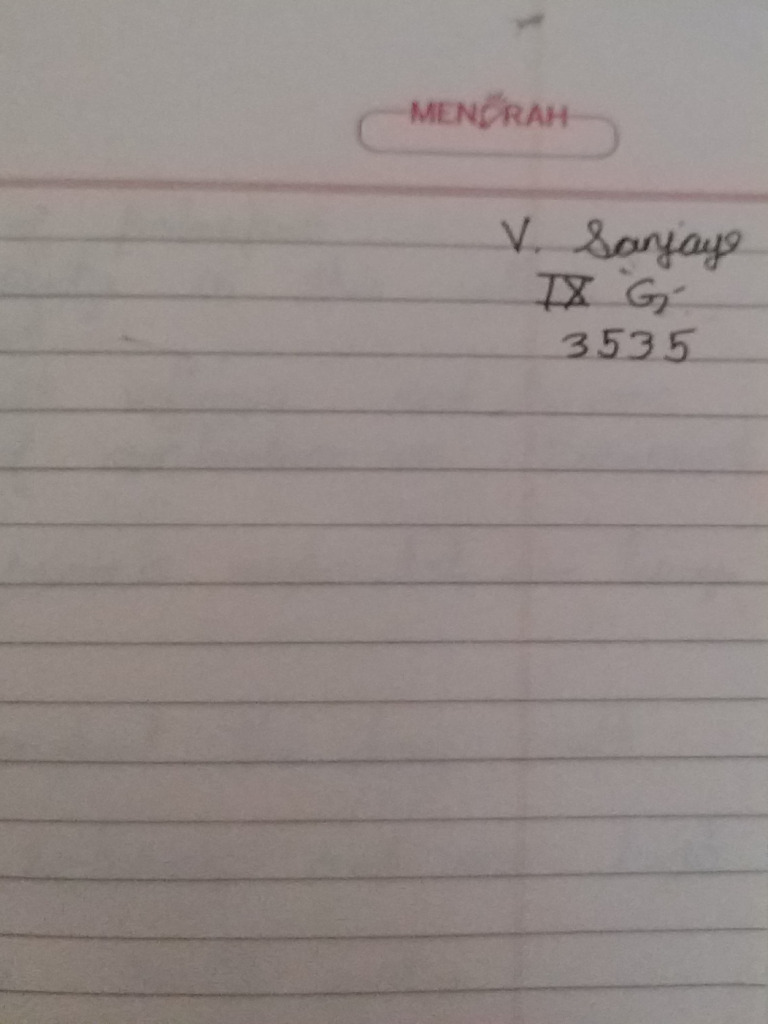 MENORAH
V. Sanjay
IX 'G'
3535